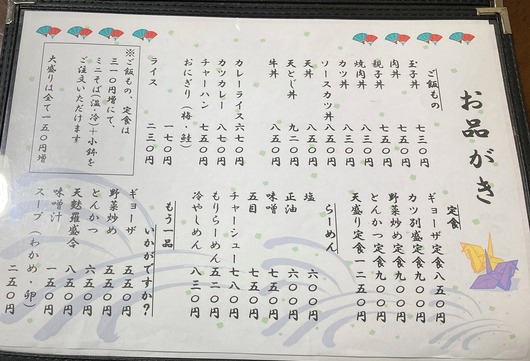 お品がき
ご飯もの
玉子丼 七三〇円
肉丼 七五〇円
親子丼 七五〇円
焼肉丼 八三〇円
カツ丼 八三〇円
ソースカツ丼 八五〇円
天丼 八五〇円
天とじ丼 九二〇円
牛丼 八五〇円
カレーライス 六七〇円
カツカレー 八三〇円
チャーハン 七五〇円
おにぎり（梅・鮭） 一七〇円
ライス 二三〇円
※ご飯もの、定食は
三一〇円増にて、
ミニそば（温・冷）＋小鉢を
ご注文いただけます
大盛りは全て一五〇円増
定食
ギョーザ定食 八五〇円
カツ別盛定食 九〇〇円
野菜炒め定食 九〇〇円
とんかつ定食 九〇〇円
天盛り定食 一二五〇円
らーめん
塩 六〇〇円
正油 六〇〇円
味噌 七五〇円
五目 七五〇円
チャーシュー 七八〇円
もりらーめん 五二〇円
冷やしめん 八三〇円
もう一品
いかがですか？
ギョーザ 五五〇円
野菜炒め 五五〇円
とんかつ 六五〇円
天麩羅盛合 八五〇円
味噌汁 一五〇円
スープ（わかめ・卯） 二五〇円